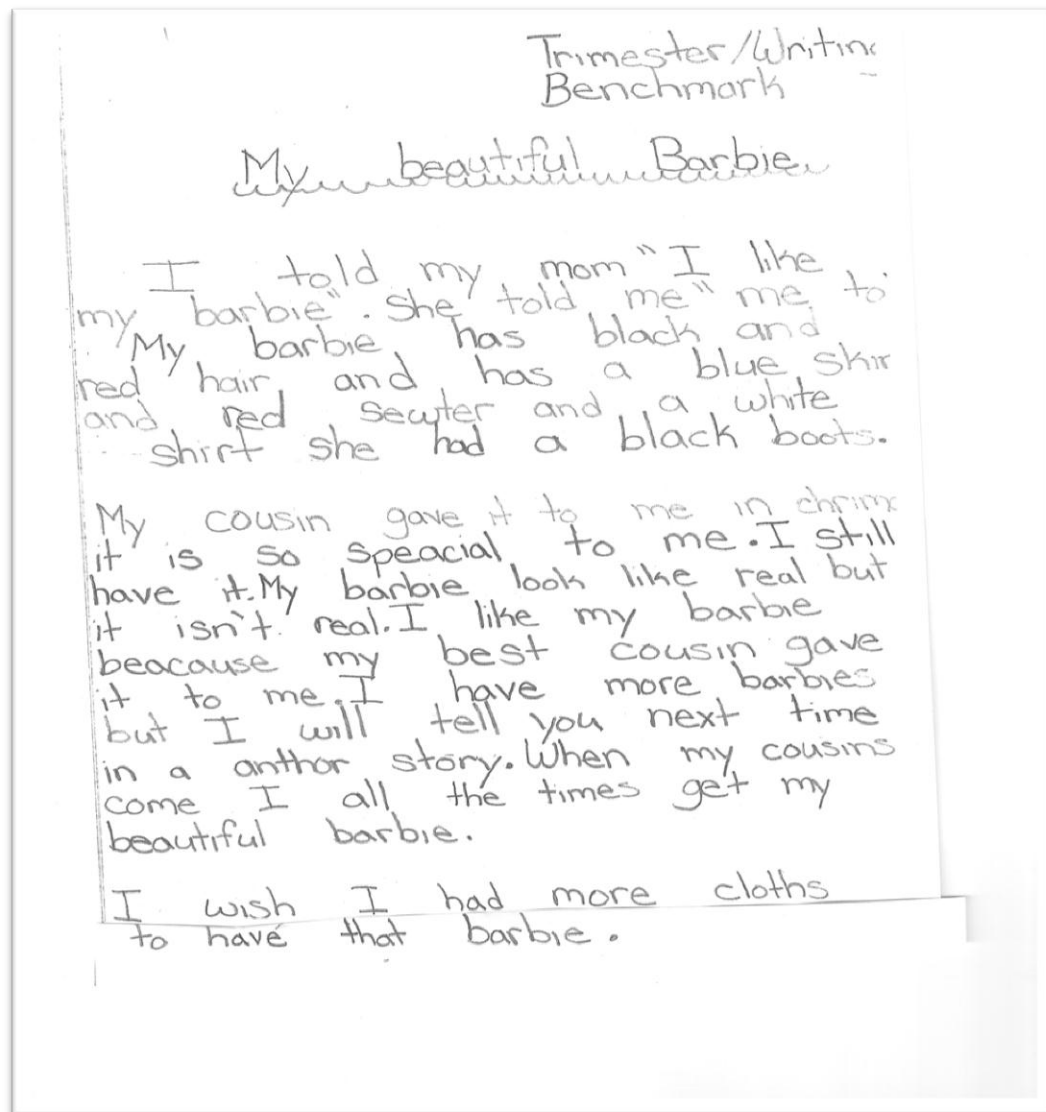 Trimester/Writin
Benchmark
My beautiful Barbie
I told my mom "I like
my barbie". She told me" me to
"My barbie has black and
red hair, and has a blue skir
and red sewter and a white
shirt she had a black boots.
My cousin gave it to me in chrim
it is so speacial to me. I still
have it. My barbie look like real but
it isn't real. I like my barbie
beacause my best cousin gave
it to me. I have more barbies
but I will tell you next time
in a anthor story. When my cousins
come I all the times get my
beautiful barbie.
I wish I had more cloths
to have that barbie.